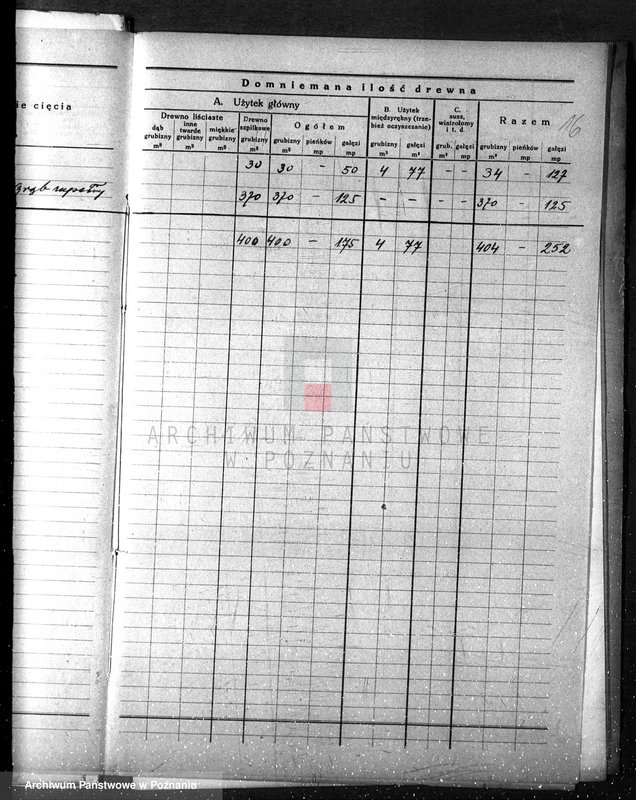 Domniemana ilość drewna
16
ie cięcia
A. Użytek główny
B. Użytek międzyrębny (trzebież oczyszczanie)
C. susz, wiatrołomy i t. d.
Razem
Drewno liściaste
Drewno szpilkowe
Ogółem
dąb grubizny m³
inne twarde grubizny m³
miękkie grubizny m³
grubizny m³
grubizny m³
pieńków mp
gałęzi mp
grubizny m³
gałęzi mp
grub. m³
gałęzi mp
grubizny m³
pieńków mp
gałęzi mp
30 30 – 50 4 77 – – 34 – 127
zrąb zupełny 370 370 – 125 – – – – 370 – 125
400 400 – 175 4 77 404 – 252
ARCHIWUM PAŃSTWOWE
W POZNANIU
Archiwum Państwowe w Poznaniu